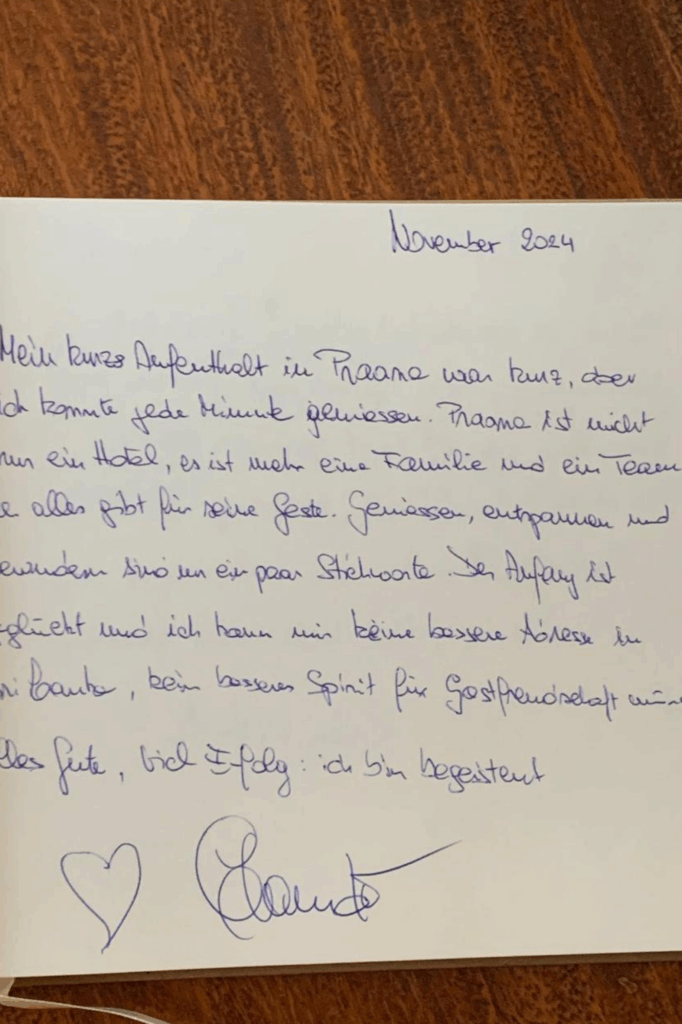 November 2024
Mein kurzs Aufenthalt in Praana war kurz, aber
ich konnte jede Minute geniessen. Praana ist nicht
nur ein Hotel, es ist mehr eine Familie und ein Team
e alles gibt für seine Geste. Geniessen, entspannen und
ewundern sind nur ein paar Stichworte. Der Anfang ist
glückt und ich kann mir keine bessere Adresse in
ri Lanka, kein besseren Spirit für Gastfreundschaft
lles Gute, viel Erfolg: ich bin begeistert